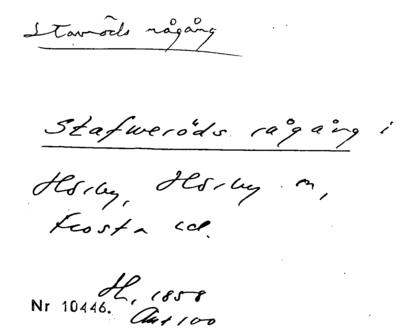 Stavröds rågång
Stafweröds rågång i
Hörby, Hörby sn,
Frosta hd.
H, 1858
Nr 10446. Akt 100